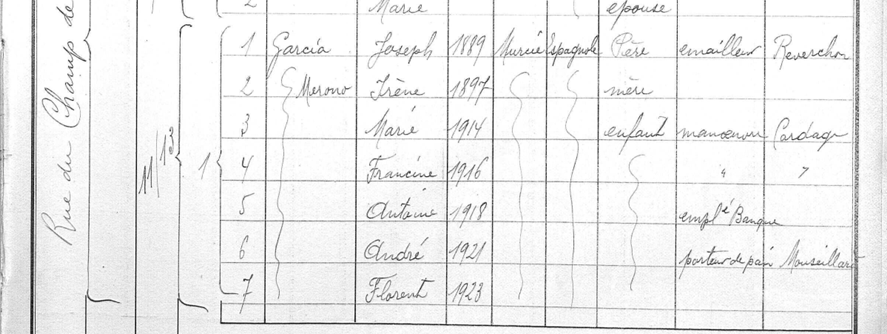 2 Marie epouse
1 Garcia Joseph 1889 Murcie Espagnole Père emailleur Reverchon
2 Merono Irène 1897 mère
3 Marie 1914 enfant manoeuvre Cardage
4 Francine 1916 " "
5 Antoine 1918 emplé Banque
6 André 1921 porteur de pain Mouseillard
7 Florent 1923
Rue du Champ de
11/1er
1